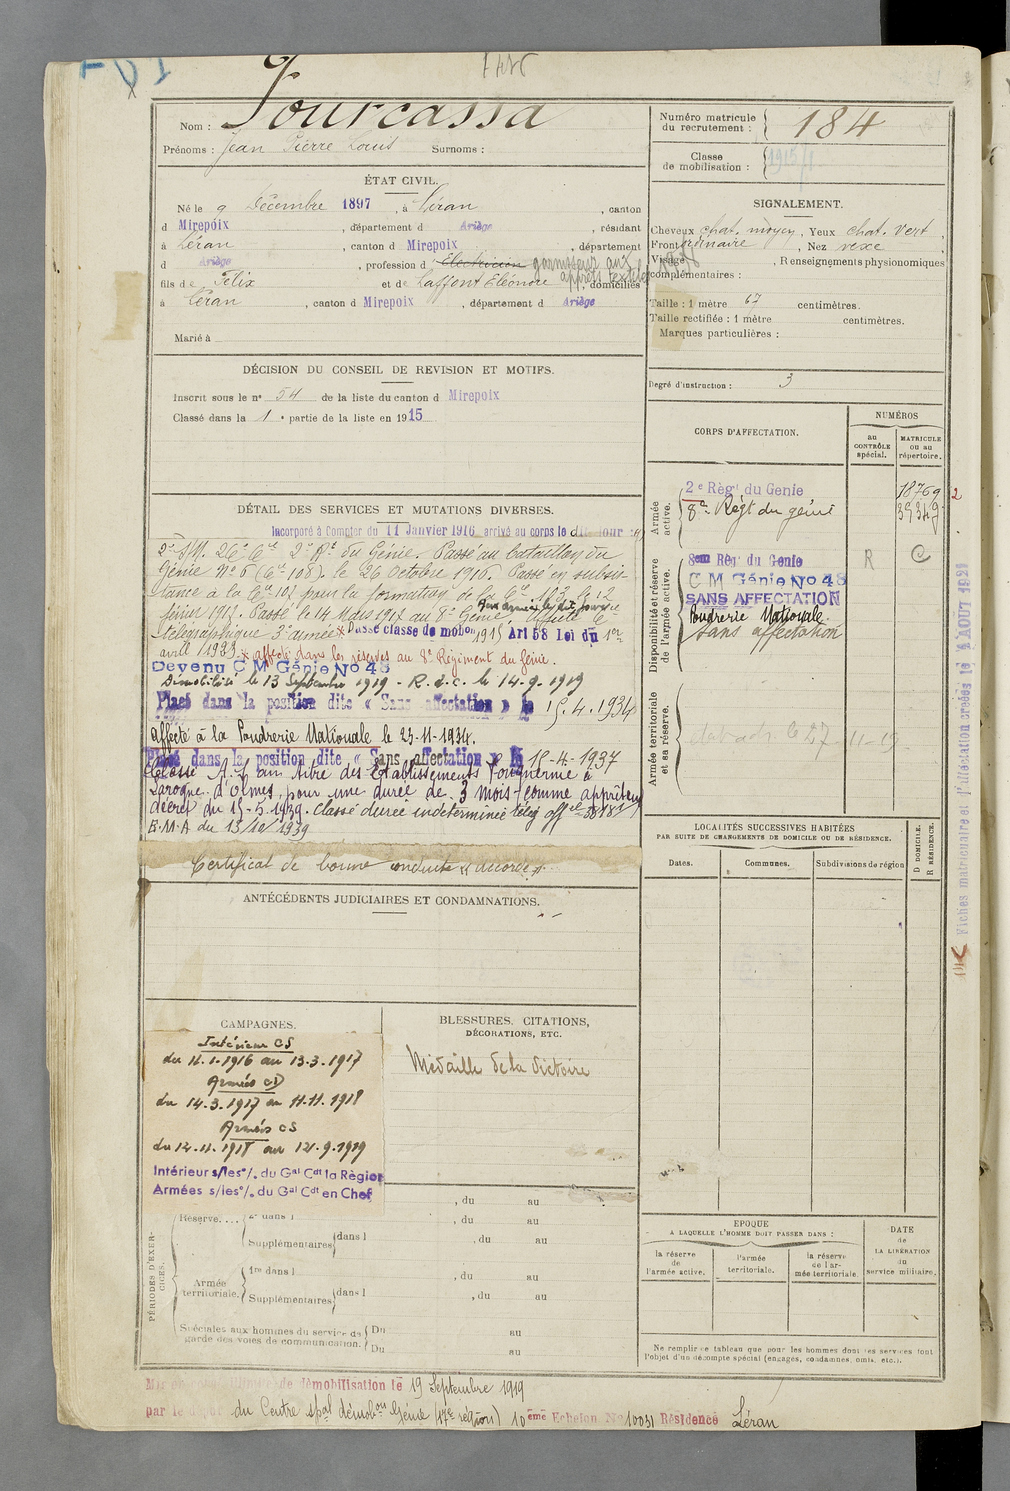 Nom : Fourcassa
Prénoms : Jean Pierre Louis Surnoms :
Numéro matricule du recrutement : 184
Classe de mobilisation :
ÉTAT CIVIL.
Né le 9 Décembre 1897, à Léran, canton
d Mirepoix, département d Ariège, résidant
à Léran, canton d Mirepoix, département
d Ariège, profession d Électricien garnisseur aux
apprêts textiles
fils de Félix et de Laffont Éléonore, domiciliés
à Léran, canton d Mirepoix, département d Ariège
Marié à
SIGNALEMENT.
Cheveux chat. moyen, Yeux chat. vert,
Front ordinaire, Nez vexe
Visage, Renseignements physionomiques
complémentaires :
Taille : 1 mètre 67 centimètres.
Taille rectifiée : 1 mètre centimètres.
Marques particulières :
Degré d'instruction : 3
DÉCISION DU CONSEIL DE REVISION ET MOTIFS.
Inscrit sous le n° 54 de la liste du canton d Mirepoix
Classé dans la 1e partie de la liste en 1915
CORPS D'AFFECTATION.
NUMÉROS
au CONTRÔLE spécial.
MATRICULE ou au répertoire.
Armée active.
2e Régt du Genie 18769
8e Régt du génie
Disponibilité et réserve de l'armée active.
8em Régt du Genie R C
C M Génie No 48
SANS AFFECTATION
Poudrerie Nationale
sans affectation
Armée territoriale et sa réserve.
DÉTAIL DES SERVICES ET MUTATIONS DIVERSES.
Incorporé à Compter du 11 Janvier 1916 arrivé au corps le dit Jour
2e S/M. 26e Cie 2e Rt du Génie. Passé au bataillon du
Génie No 6 (Cie 108) le 26 Octobre 1916. Passé en subsis-
tance à la Cie pour la formation de la Cie le 12
février 1917. Passé le 14 Mars 1917 au 8e Génie, affecté Cie
télégraphique 3e armée Passé classe de mobon 1915 Art 58 Loi du 1er
avril 1923. affecté dans les réserves au 8e Régiment du Génie.
Devenu C M Génie No 48
Démobilisé le 13 Septembre 1919 - R.d.C. le 14-9-1919
Placé dans la position dite « Sans affectation » le 15.4.1934
Affecté à la Poudrerie Nationale le 23-11-1934.
Placé dans la position dite « Sans affectation » le 15-4-1937
Classé A.S. au titre des Établissements Fonquernie à
Laroque d'Olmes, pour une durée de 3 mois comme apprêteur
décret du 15-5-1939. Classé durée indéterminée télég offel
E.M.A du 13/10/1939
Certificat de bonne conduite « accordé »
ANTÉCÉDENTS JUDICIAIRES ET CONDAMNATIONS.
LOCALITÉS SUCCESSIVES HABITÉES
PAR SUITE DE CHANGEMENTS DE DOMICILE OU DE RÉSIDENCE.
Dates. Communes. Subdivisions de région
D DOMICILE.
R RÉSIDENCE.
Fiches matriculaire et d'affectation créées le 4 AOUT 1921
CAMPAGNES.
Intérieur CS
du 11.1.1916 au 13.3.1917
Armées CD
du 14.3.1917 au 11.11.1918
Armées CS
du 12.11.1918 au 12.9.1919
Intérieur s/les o/. du Gal Cdt la Région
Armées s/les o/. du Gal Cdt en Chef
BLESSURES, CITATIONS,
DÉCORATIONS, ETC.
Médaille de la Victoire
PÉRIODES D'EXERCICES.
, du au
Réserve.... 2e dans l , du au
Supplémentaires dans l , du au
Armée territoriale. 1re dans l , du au
Supplémentaires dans l , du au
Spéciales aux hommes du service de garde des voies de communication. Du au
Du au
EPOQUE
A LAQUELLE L'HOMME DOIT PASSER DANS :
la réserve de l'armée active.
l'armée territoriale.
la réserve de l'armée territoriale.
DATE
de
LA LIBÉRATION
du
service militaire.
Ne remplir ce tableau que pour les hommes dont les services font
l'objet d'un décompte spécial (engagés, condamnés, omis, etc.).
démobilisation le 19 Septembre 1919
par le du Centre spal démobon Génie (17e région) 10eme Echelon No 10031 Résidence Léran